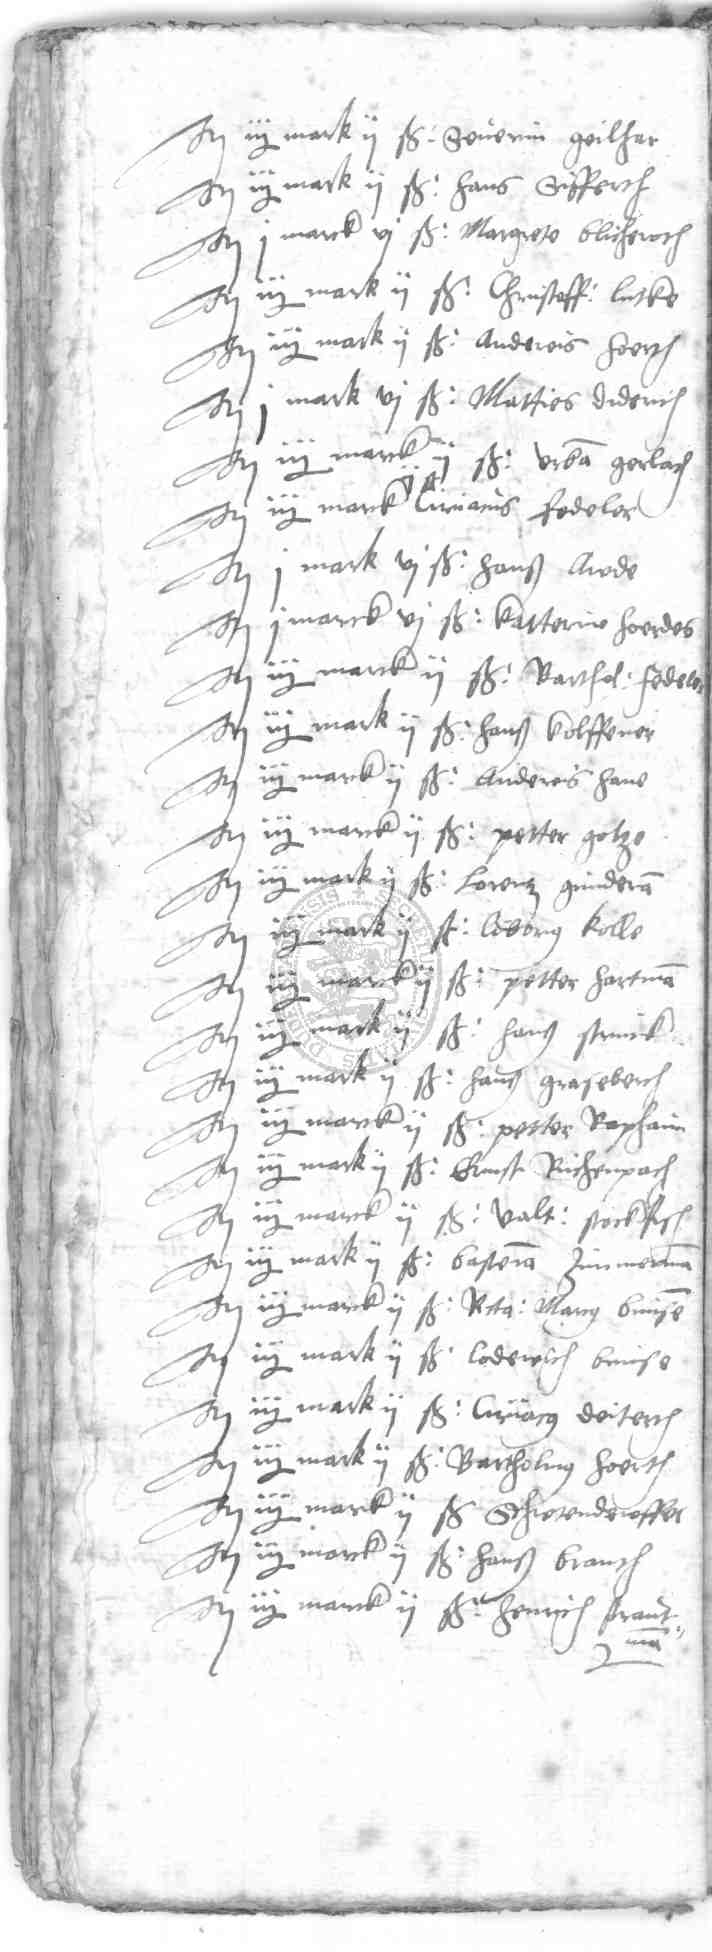 It iij mark ij ß: Seuerin geilhar
It iij mark ij ß: hans Sifferth
It j marck vj ß: Margrete blicheroth
It iij mark ij ß: Christoff: lutke
It iij mark ij ß: Andereis hoerth
It j mark vj ß: Matties diderich
It iij marck ij ß: vrbā gerlach
It iij marck ij ß Ciriacus fedeler
It j mark vj ß: hanß Arode
It j marck vj ß: katterine hoerdes
It iij marck ij ß: Barthol: fedeler
It iij mark ij ß: hanß kolffener
It iij marck ij ß: Andereis hane
It iij marck ij ß: petter gotze
It iij mark ij ß: lorentz gunderā
It iij mark ij ß: kolle
It iij marck ij ß: petter hartmā
It iij mark ij ß: hans struick
It iij mark ij ß: hans graseberch
It iij marck ij ß: petter Raphain
It iij mark ij ß: Ernst Richenpach
It iij marck ij ß: Valt: stockfisch
It iij mark ij ß: bastenā Zimmermā
It iij marck ij ß: Rcta: Marcus bruise
It iij mark ij ß: lodewich bruise
It iij mark ij ß: Ciriacus deiterich
It iij mark ij ß: Bartholmus hoerth
It iij marck ij ß
It iij marck ij ß: hanß branth
It iij marck ij ß: henrich straut
mā